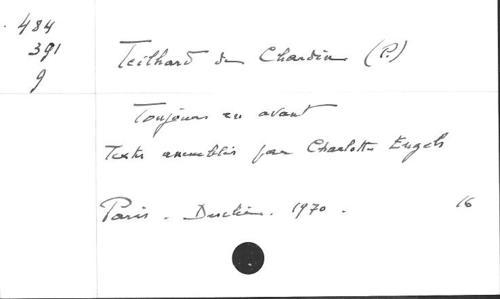 484
391
9
Teilhard de Chardin (P.)
Toujours en avant
Textes assemblés par Charlotte Engels
Paris. Desclée. 1970.
16